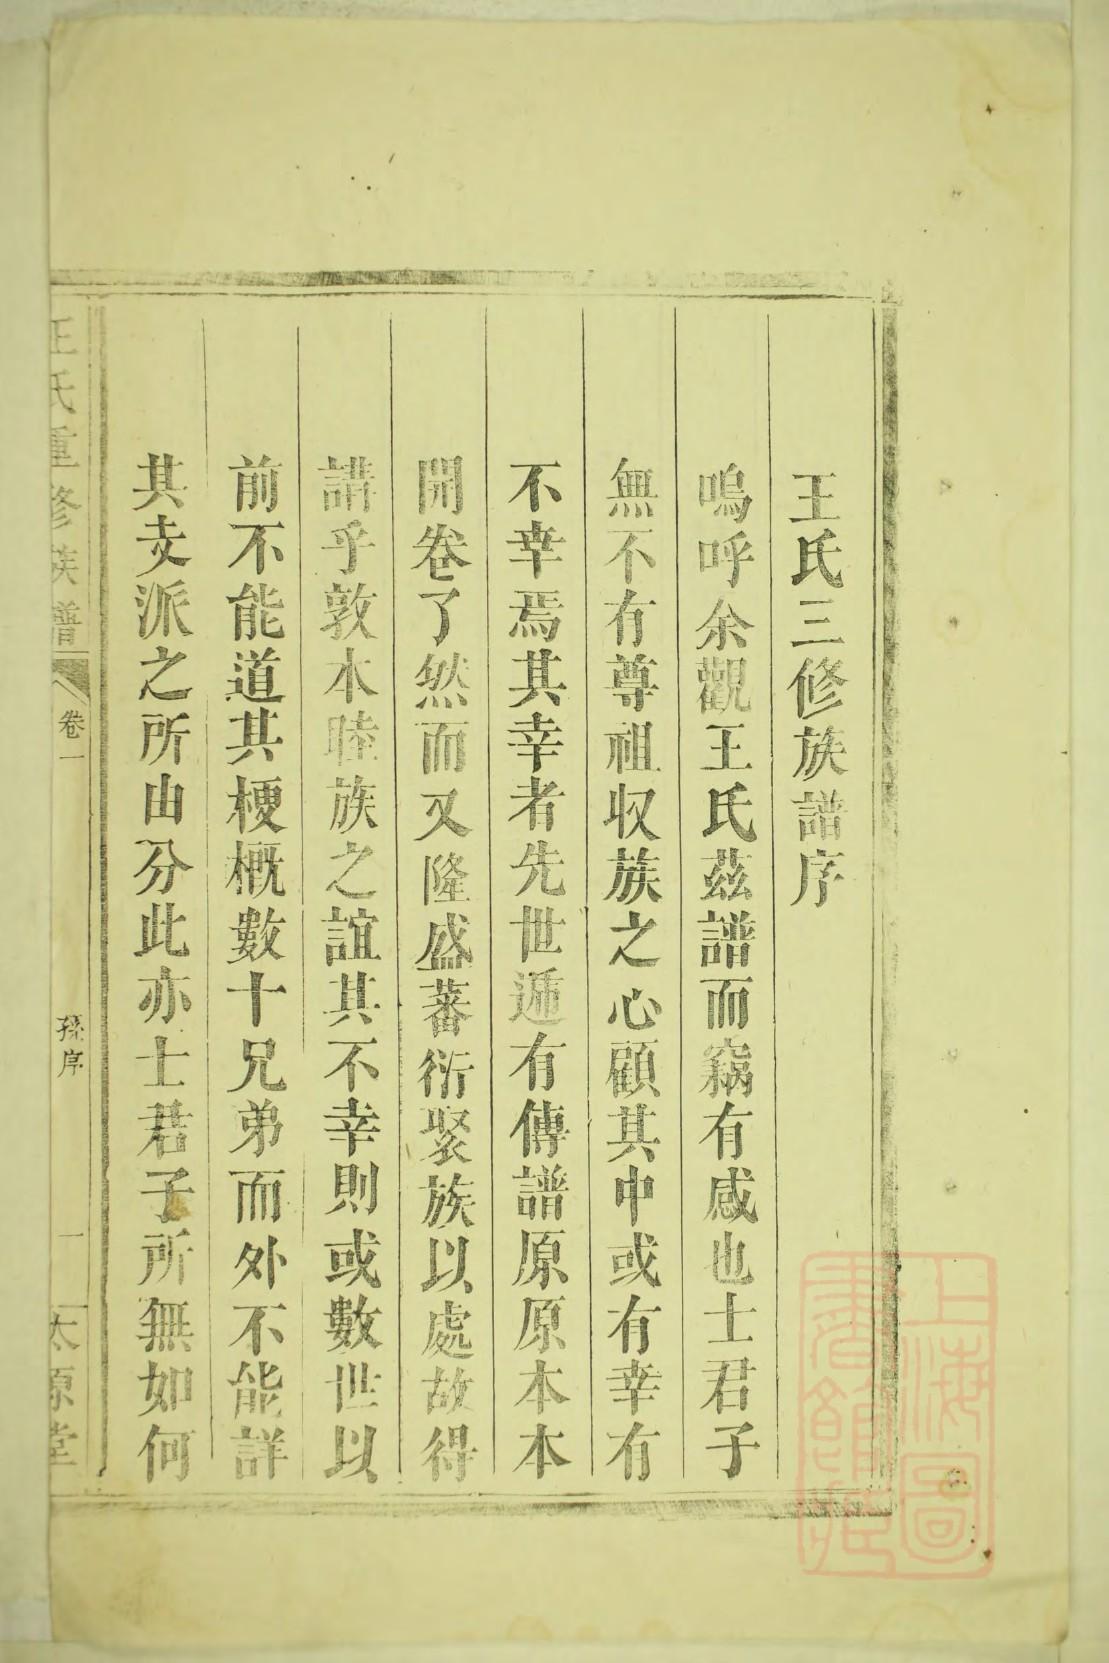 王氏三修族譜序
嗚呼余觀王氏茲譜而竊有感也士君子
無不有尊祖収族之心顧其中或有幸有
不幸焉其幸者先世遞有傳譜原原本本
開卷了然而又隆盛蕃衍聚族以處故得
講乎敦本睦族之誼其不幸則或數世以
前不能道其梗概數十兄弟而外不能詳
其支派之所由分此亦士君子所無如何
王氏重修族譜
卷一
孫序
一
太原堂
上海圖
書館藏